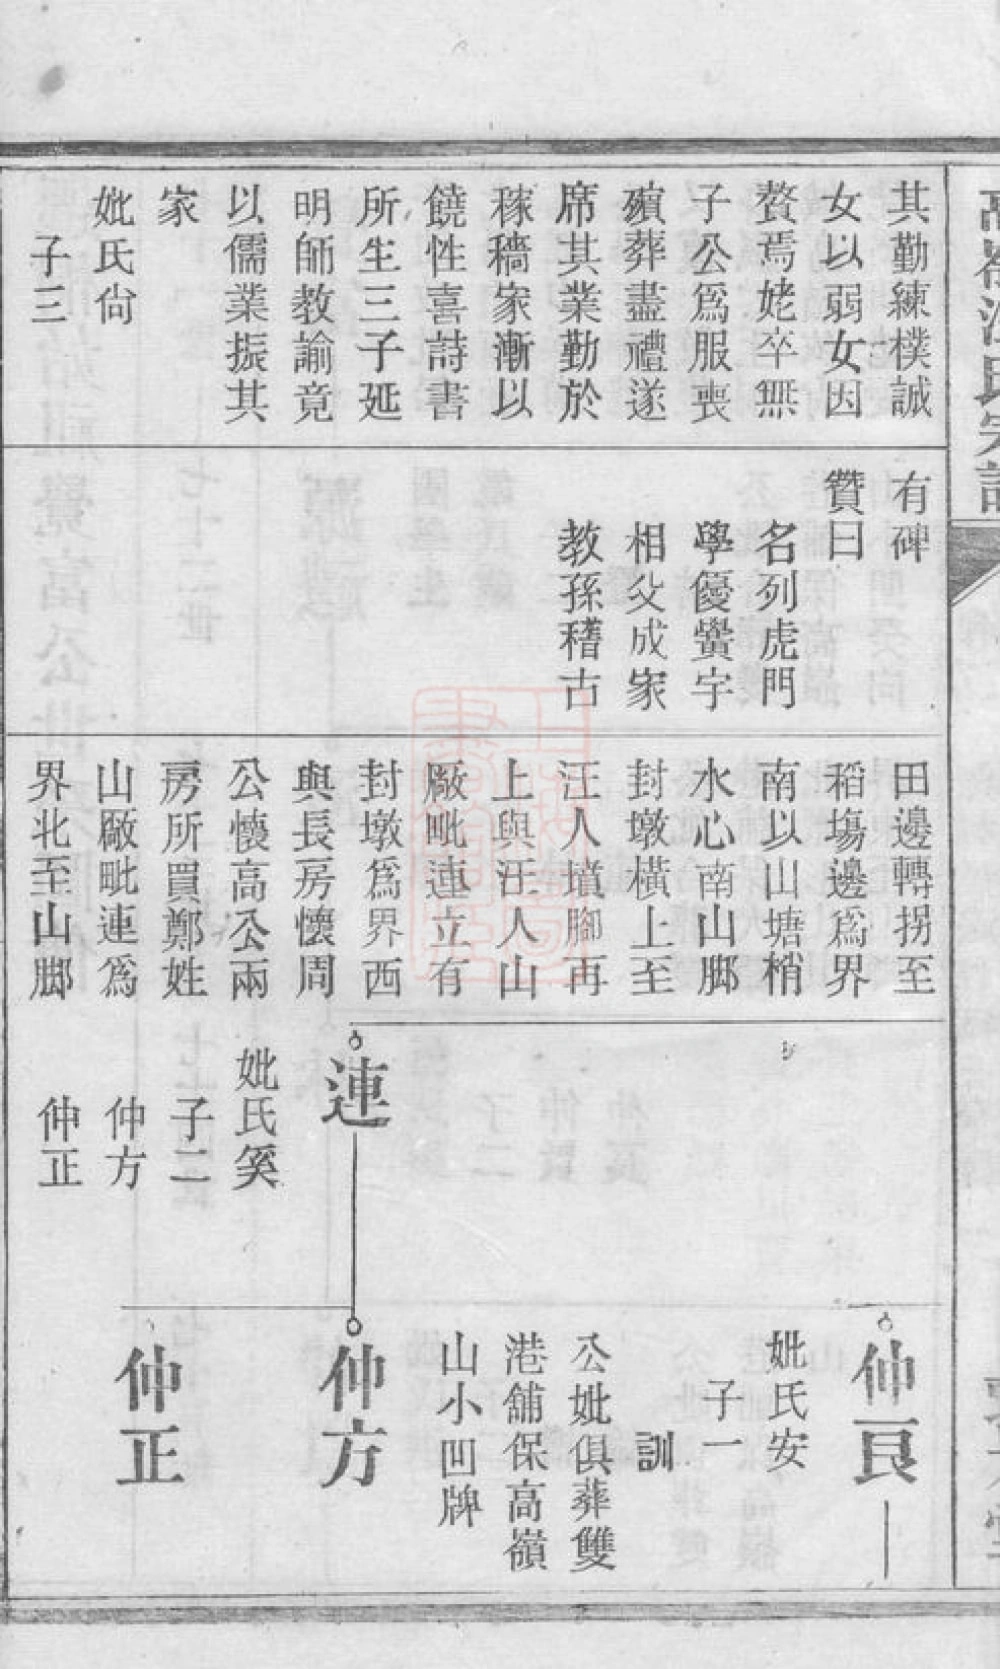 其勤練樸誠
女以弱女因
贅焉姥卒無
子公爲服喪
殯葬盡禮遂
席其業勤於
稼穡家漸以
饒性喜詩書
所生三子延
明師教諭竟
以儒業振其
家
妣氏尙
子三
有碑
贊曰
名列虎門
學優黌宇
相父成家
教孫稽古
田邊轉拐至
稻塲邊爲界
南以山塘梢
水心南山脚
封墩橫上至
汪人墳腳再
上與汪人山
厰毗連立有
封墩爲界西
與長房懷周
公懷高公兩
房所買鄭姓
山厰毗連爲
界北至山脚
連
妣氏奚
子二
仲方
仲正
仲良
妣氏安
子一
訓
公妣俱葬雙
港舖保高嶺
山小凹牌
仲方
仲正